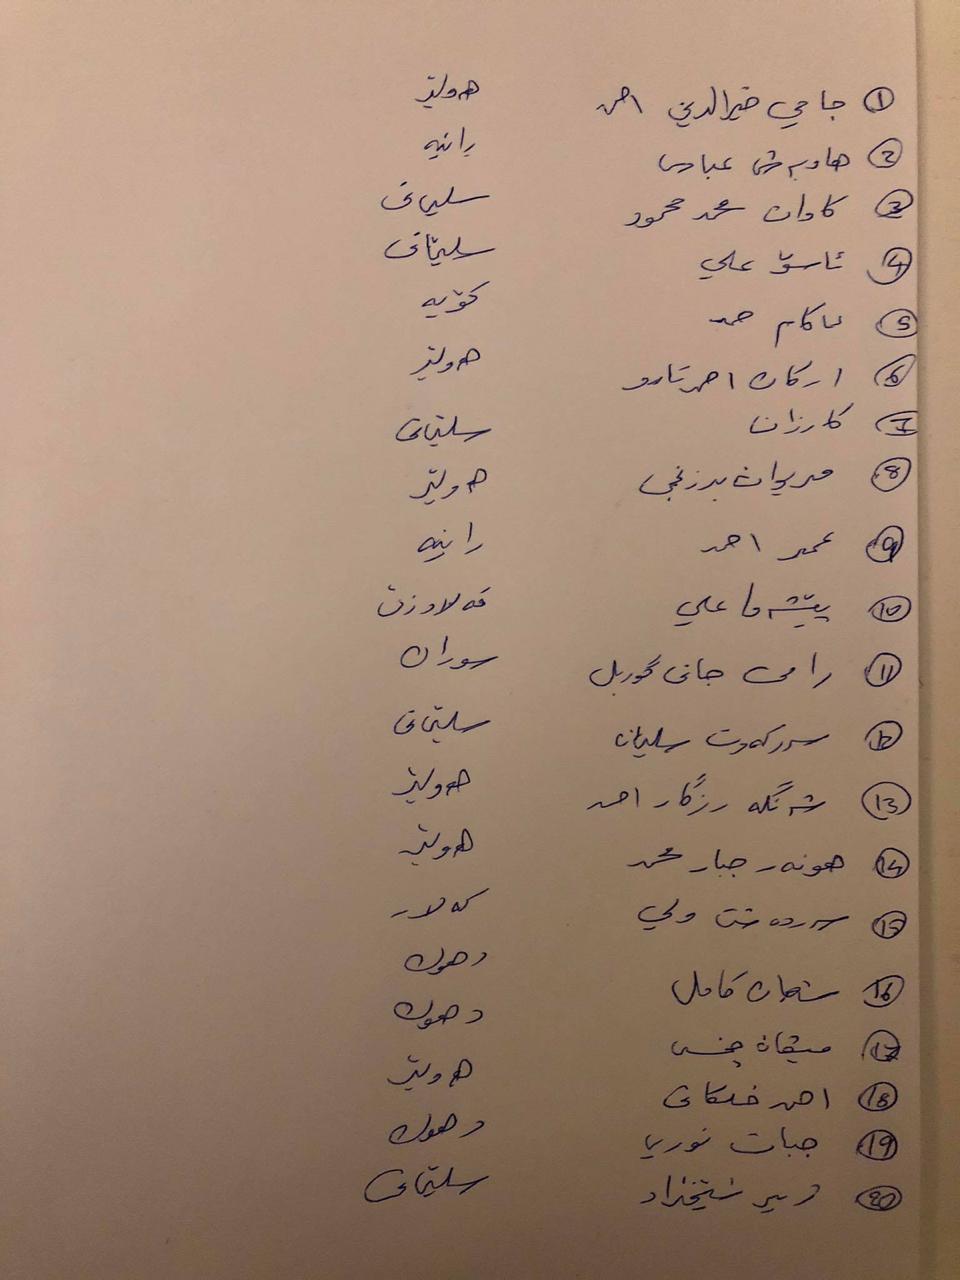 1 جامي خيرالدين احمد هەولێر
2 هاوبەش عباس رانیە
3 كاوان محمد محمود سلێمانی
4 ئاسۆ علي سلێمانی
5 ئاكام حمد كۆیە
6 اركان احمد هەولێر
7 كارزان سلێمانی
8 مەریوان بەرزنجی هەولێر
9 عمر احمد رانیە
10 پێشەوا علي قەلادزێ
11 رامی جانی گوربل سوران
12 سەركەوت سلێمان سلێمانی
13 شەنگە رزگار احمد هەولێر
14 هونەر جبار محمد هەولێر
15 سەردەشت ولي كەلار
16 شعبان كامل دهوك
17 دهوك
18 احمد خەلكانی هەولێر
19 جبات دهوك
20 سلێمانی